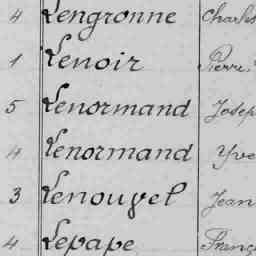 4 Lengronne Charles
1 Lenoir Pierre
5 Lenormand Josep
4 Lenormand Yve
3 Lenouvel Jean
4 Lepape Franç